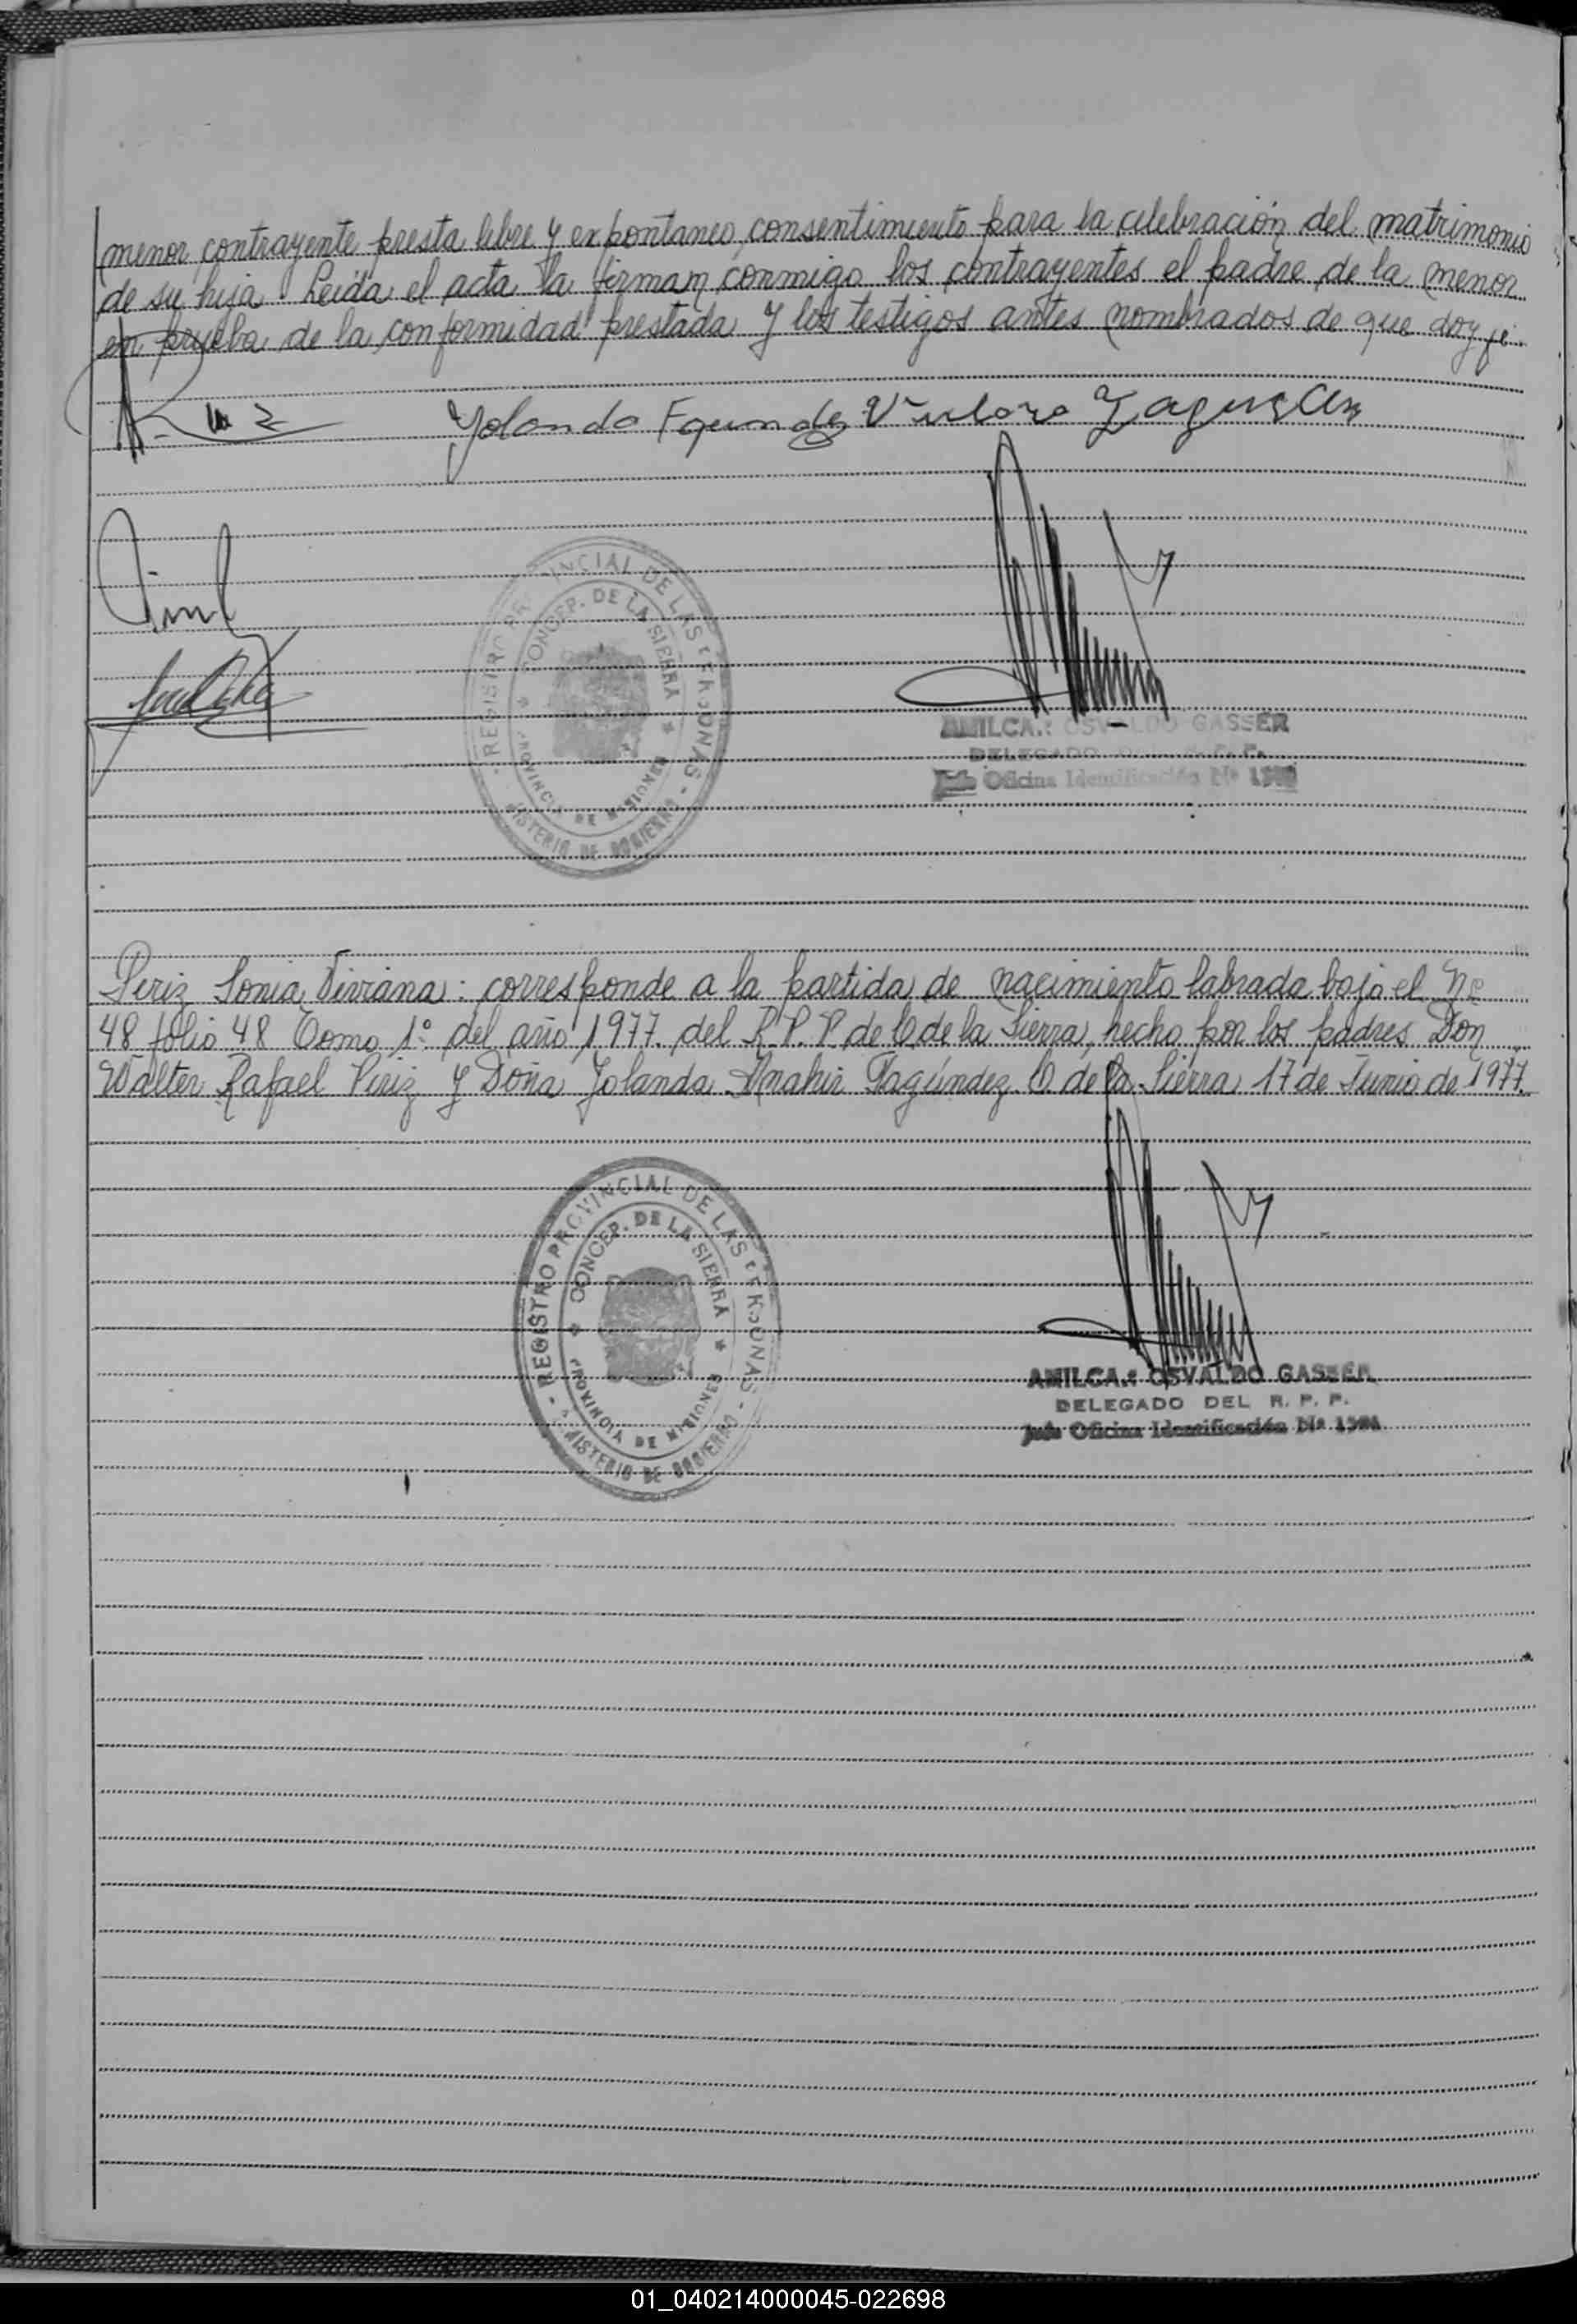 menor contrayente presta libre y expontaneo, consentimiento para la celebración del matrimonio
de su hija. Leida el acta la firman conmigo los contrayentes el padre de la menor
en prueba de la conformidad prestada y los testigos antes nombrados de que doy fé.
Yolanda Fqundez
REGISTRO PROVINCIAL DE LAS PERSONAS
CONCEP. DE LA SIERRA
PROVINCIA DE MISIONES
MINISTERIO DE GOBIERNO
OSVALDO GASSER
DELEGADO DEL R. P. P.
Jefe Oficina Identificación Nº
Periz Sonia Viviana: corresponde a la partida de nacimiento labrada bajo el Nº
48 folio 48 Tomo 1º del año 1977. del R.P.P. de C de la Sierra, hecho por los padres Don
Walter Rafael Periz y Doña Yolanda Anahir Fagúndez. C. de la Sierra 17 de Junio de 1977.
REGISTRO PROVINCIAL DE LAS PERSONAS
CONCEP. DE LA SIERRA
PROVINCIA DE MISIONES
MINISTERIO DE GOBIERNO
AMILCA.: OSVALDO GASSER
DELEGADO DEL R. P. P.
Jefe Oficina Identificación Nº
01_040214000045-022698